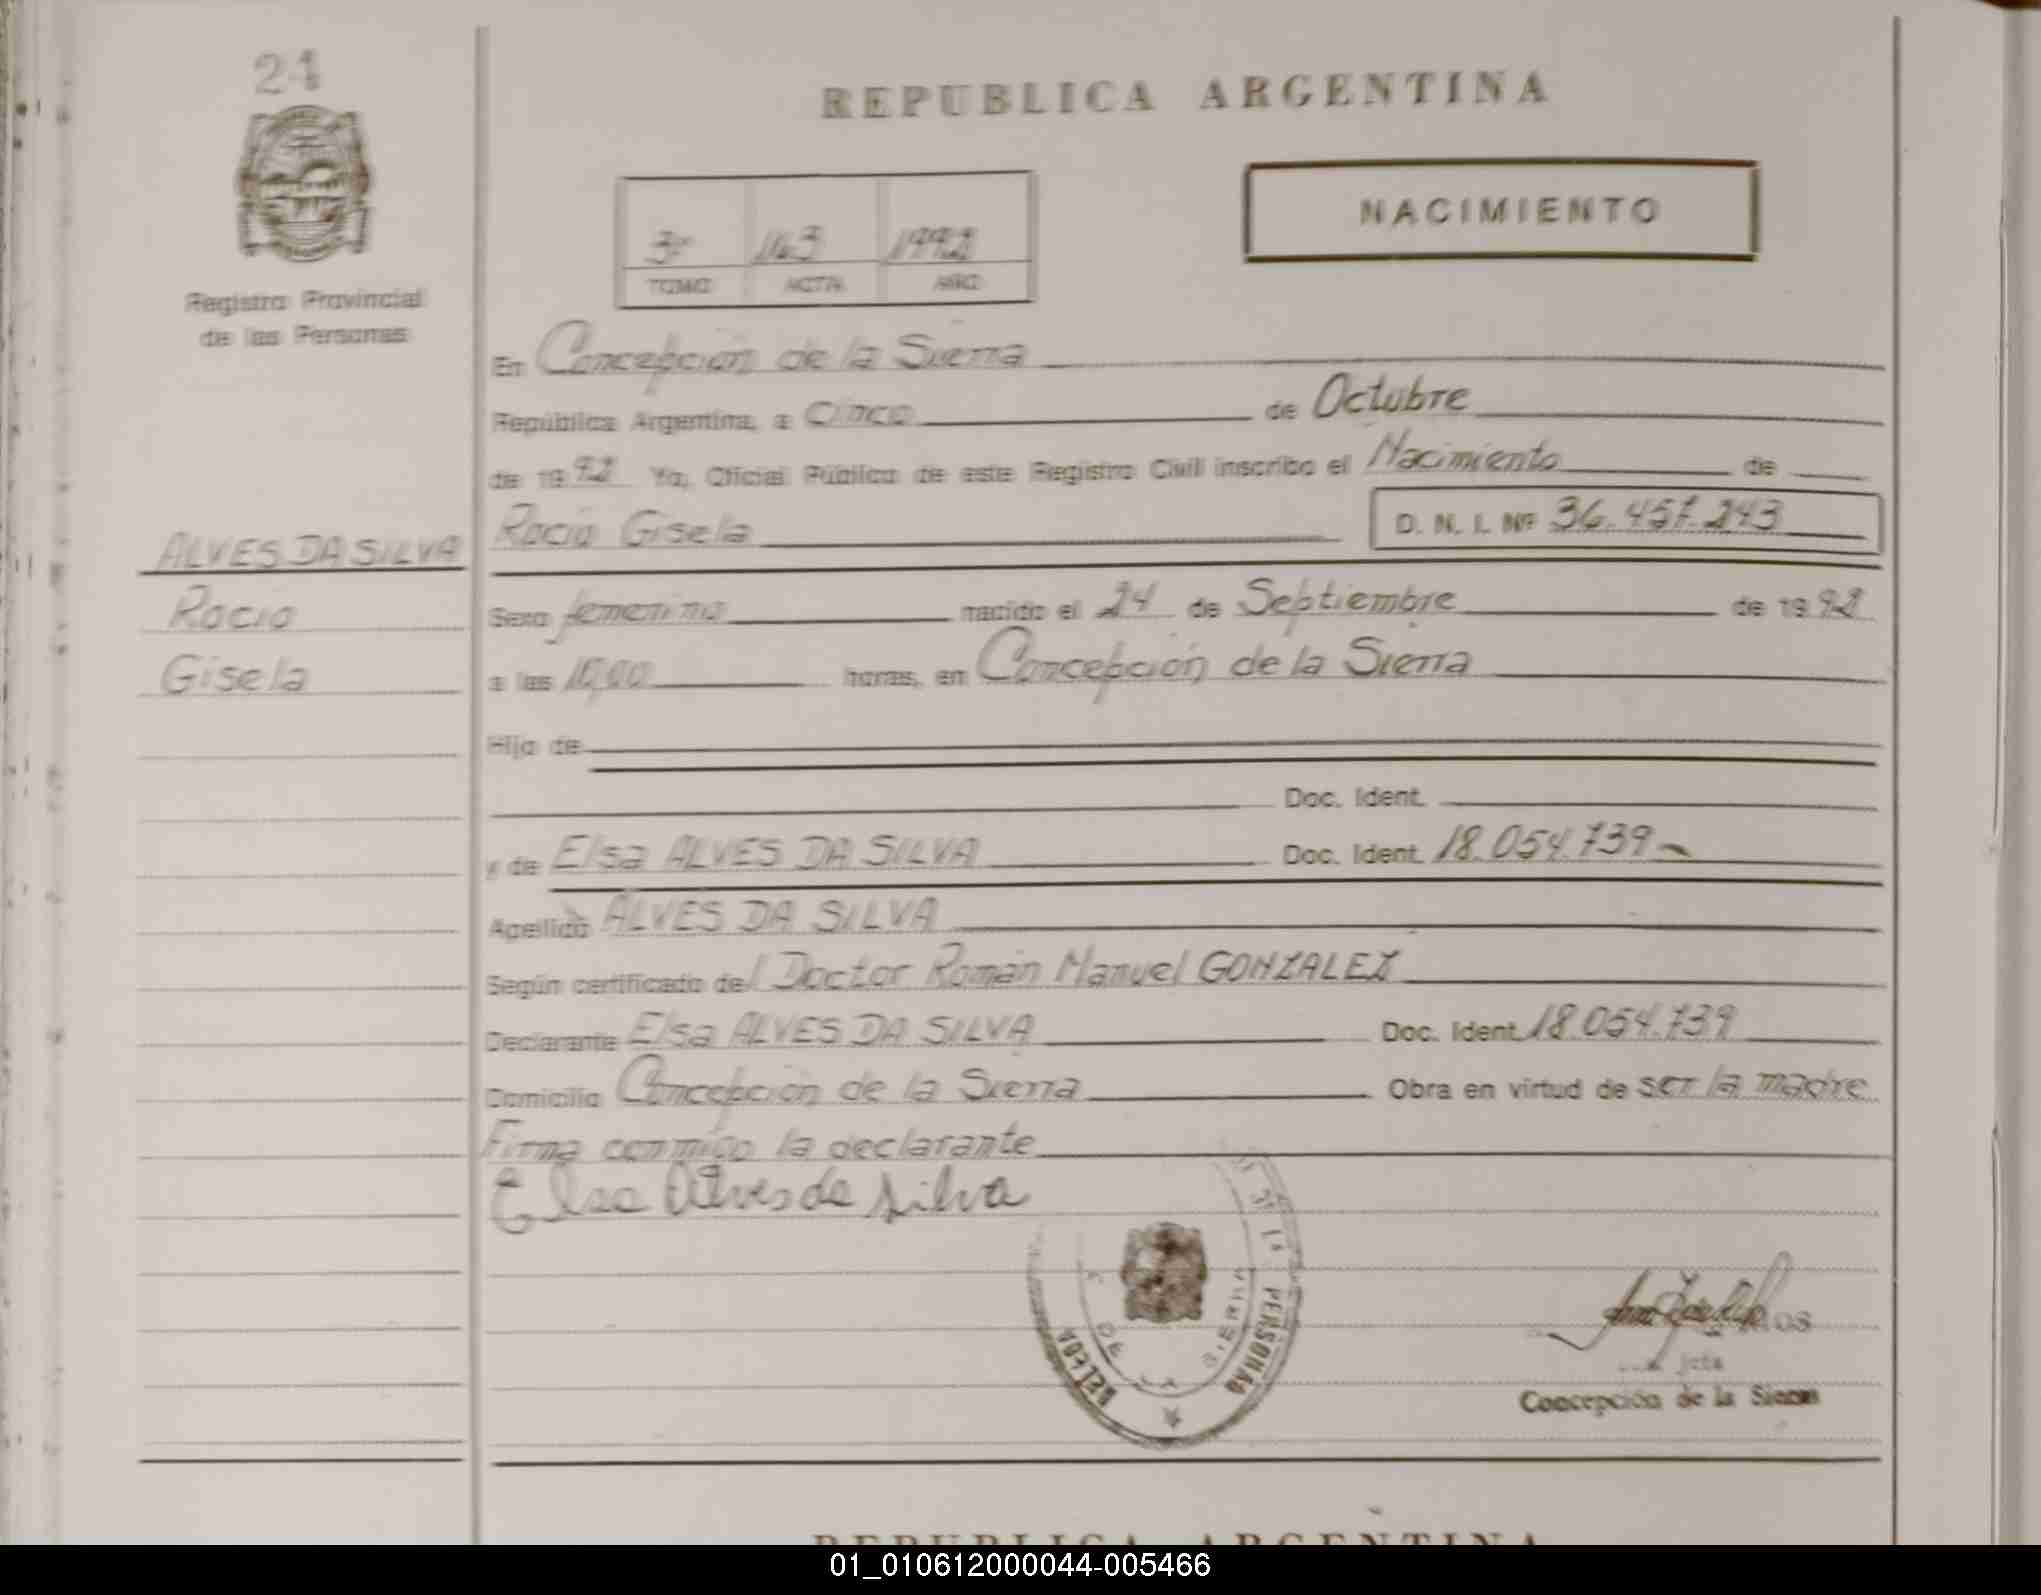 24
REPUBLICA ARGENTINA
NACIMIENTO
3º 163 1992
TOMO ACTA AÑO
Registro Provincial
de las Personas
En Concepción de la Sierra
República Argentina, a Cinco de Octubre
de 1992 Yo, Oficial Público de este Registro Civil inscribo el Nacimiento de
Rocio Gisela D. N. I. Nº 36.457.243
ALVES DA SILVA
Rocio
Gisela
Sexo femenino nacido el 24 de Septiembre de 1992
a las horas, en Concepción de la Sierra
Hijo de
Doc. Ident.
y de Elsa ALVES DA SILVA Doc. Ident. 18.054.739
Apellido ALVES DA SILVA
Según certificado del Doctor Román Manuel GONZALEZ
Declarante Elsa ALVES DA SILVA Doc. Ident. 18.054.739
Domicilio Concepción de la Sierra Obra en virtud de ser la madre
Firma conmigo la declarante
Elsa Alves da silva
PERSONAS
DE
SIERRA
Jefa
Concepción de la Sierra
REPUBLICA ARGENTINA
01_010612000044-005466